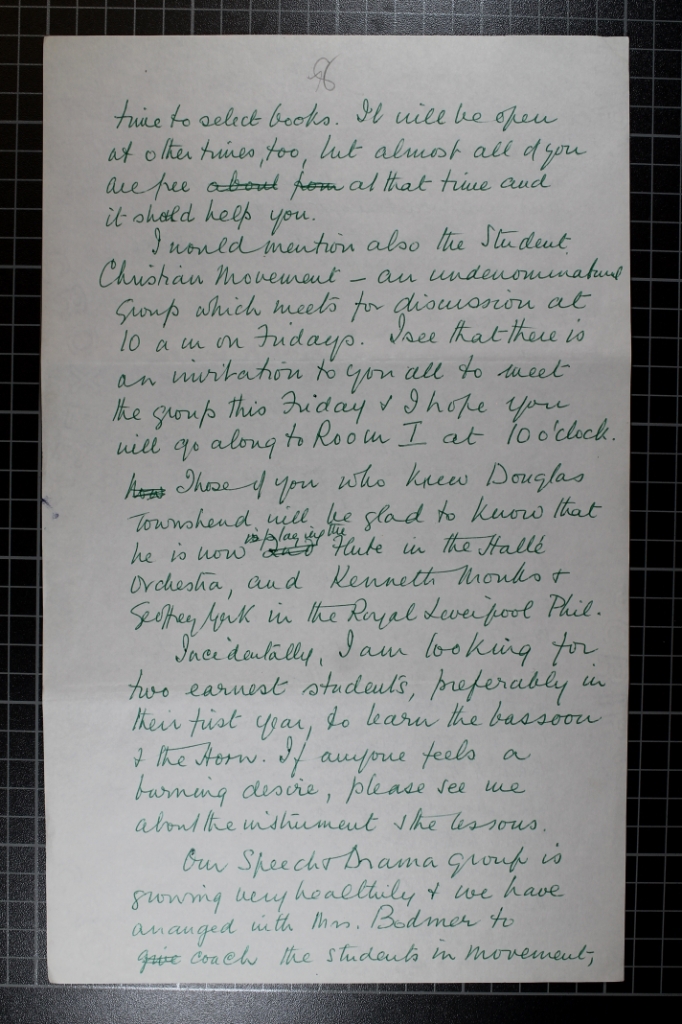 time to select books. It will be open
at other times, too, but almost all of you
are free about from at that time and
it should help you.
I would mention also the Student
Christian Movement – an undenominational
group which meets for discussion at
10 a m on Fridays. I see that there is
an invitation to you all to meet
the group this Friday & I hope you
will go along to Room I at 10 o'clock.
Those of you who knew Douglas
Townshend will be glad to know that
is playing the
he is now and Flute in the Hallé
Orchestra, and Kenneth Monks &
Geoffrey York in the Royal Liverpool Phil.
Incidentally, I am looking for
two earnest students, preferably in
their first year, to learn the bassoon
& the Horn. If anyone feels a
burning desire, please see me
about the instrument & the lessons.
Our Speech & Drama Group is
growing very healthily & we have
arranged with Mrs. Bodmer to
give coach the students in movement,